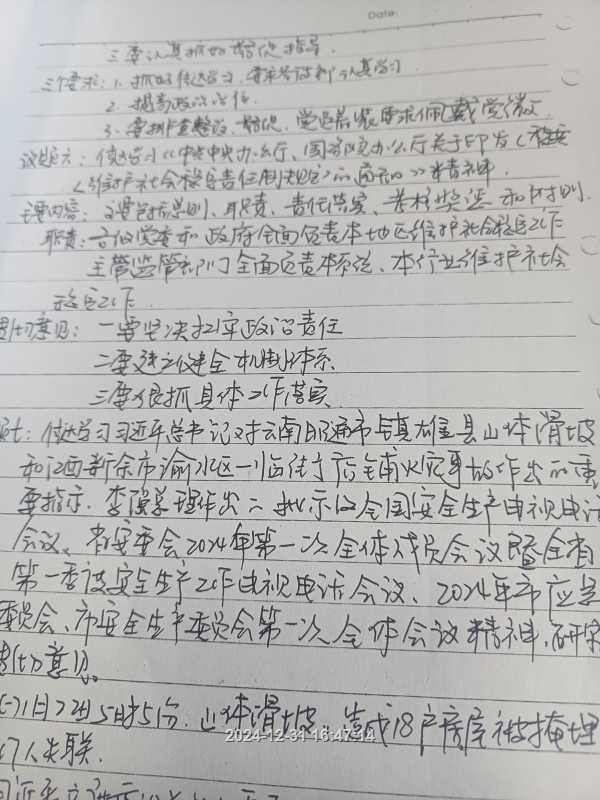 Date:
三要认真抓好督促指导.
三个要求: 1. 抓好传达学习, 要求各支部认真学习
2. 提高政治站位
3. 要排查整改、督促, 党员后装要求佩戴党徽.
议题六: 传达学习《中共中央办公厅、国务院办公厅关于印发〈
〈维护社会稳定责任制规定〉的通知》精神.
主要内容: 主要包括总则、职责、责任落实、考核奖惩和附则.
职责: 各级党委和政府全面负责本地区维护社会稳定工作
主管监管部门全面负责本系统、本行业维护社会
稳定工作.
贯彻意见: 一要坚决扛牢政治责任
二要建立健全机制体系
三要狠抓具体工作落实
传达学习习近平总书记对云南昭通市镇雄县山体滑坡
和江西新余市渝水区一临街店铺火灾事故作出的重
要指示, 李强总理作出的批示及全国安全生产电视电话
会议、省安委会2024年第一次全体成员会议暨全省
第一季度安全生产工作电视电话会议、2024年市应急
委员会、市安全生产委员会第一次全体会议精神, 研究
贯彻意见.
(一)1月22日5时51分, 山体滑坡, 造成18户房屋被掩埋
47人失联.
2024-12-31 16:47:14